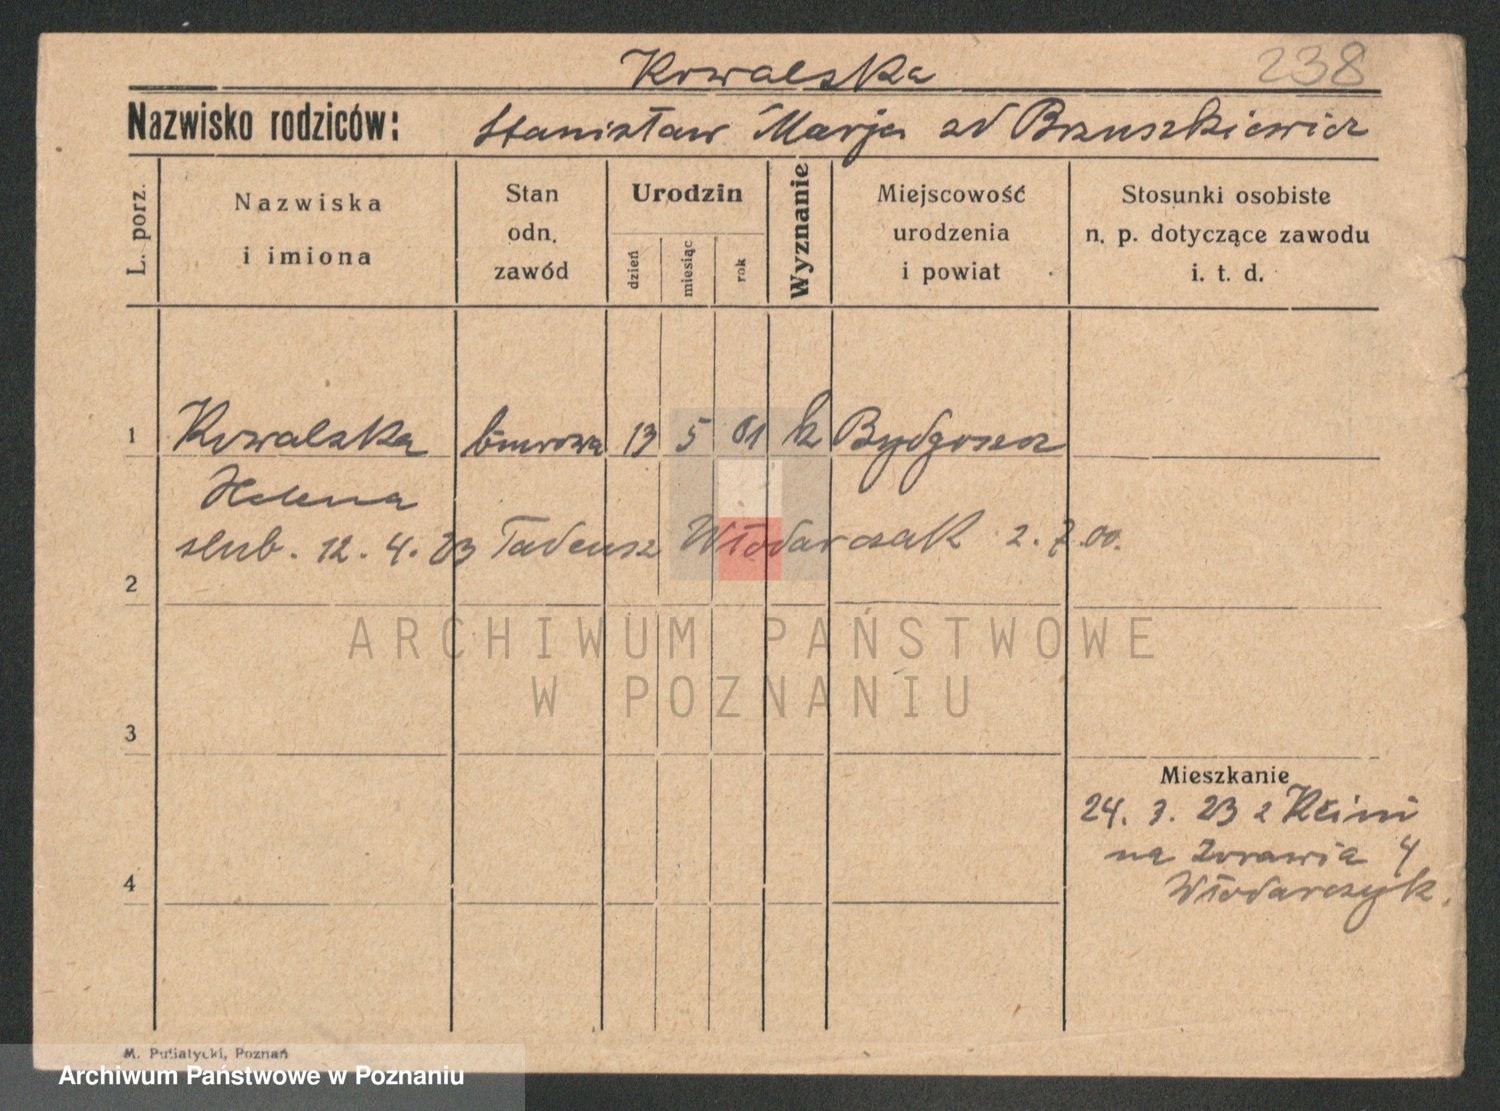 Kowalska
238
Nazwisko rodziców: Stanisław Marja zd Bruszkiewicz
L. porz.
Nazwiska
i imiona
Stan
odn.
zawód
Urodzin
dzień
miesiąc
rok
Wyznanie
Miejscowość
urodzenia
i powiat
Stosunki osobiste
n. p. dotyczące zawodu
i. t. d.
1 Kowalska biurowa 13 5 01 k Bydgoszcz
Helena
slub. 12. 4. 23 Tadeusz Włodarczak 2. 7. 00.
2
ARCHIWUM PAŃSTWOWE
W POZNANIU
3
Mieszkanie
24. 3. 23 z
na Żurawia 4
4
Włodarczyk.
M. Putiatycki, Poznań
Archiwum Państwowe w Poznaniu